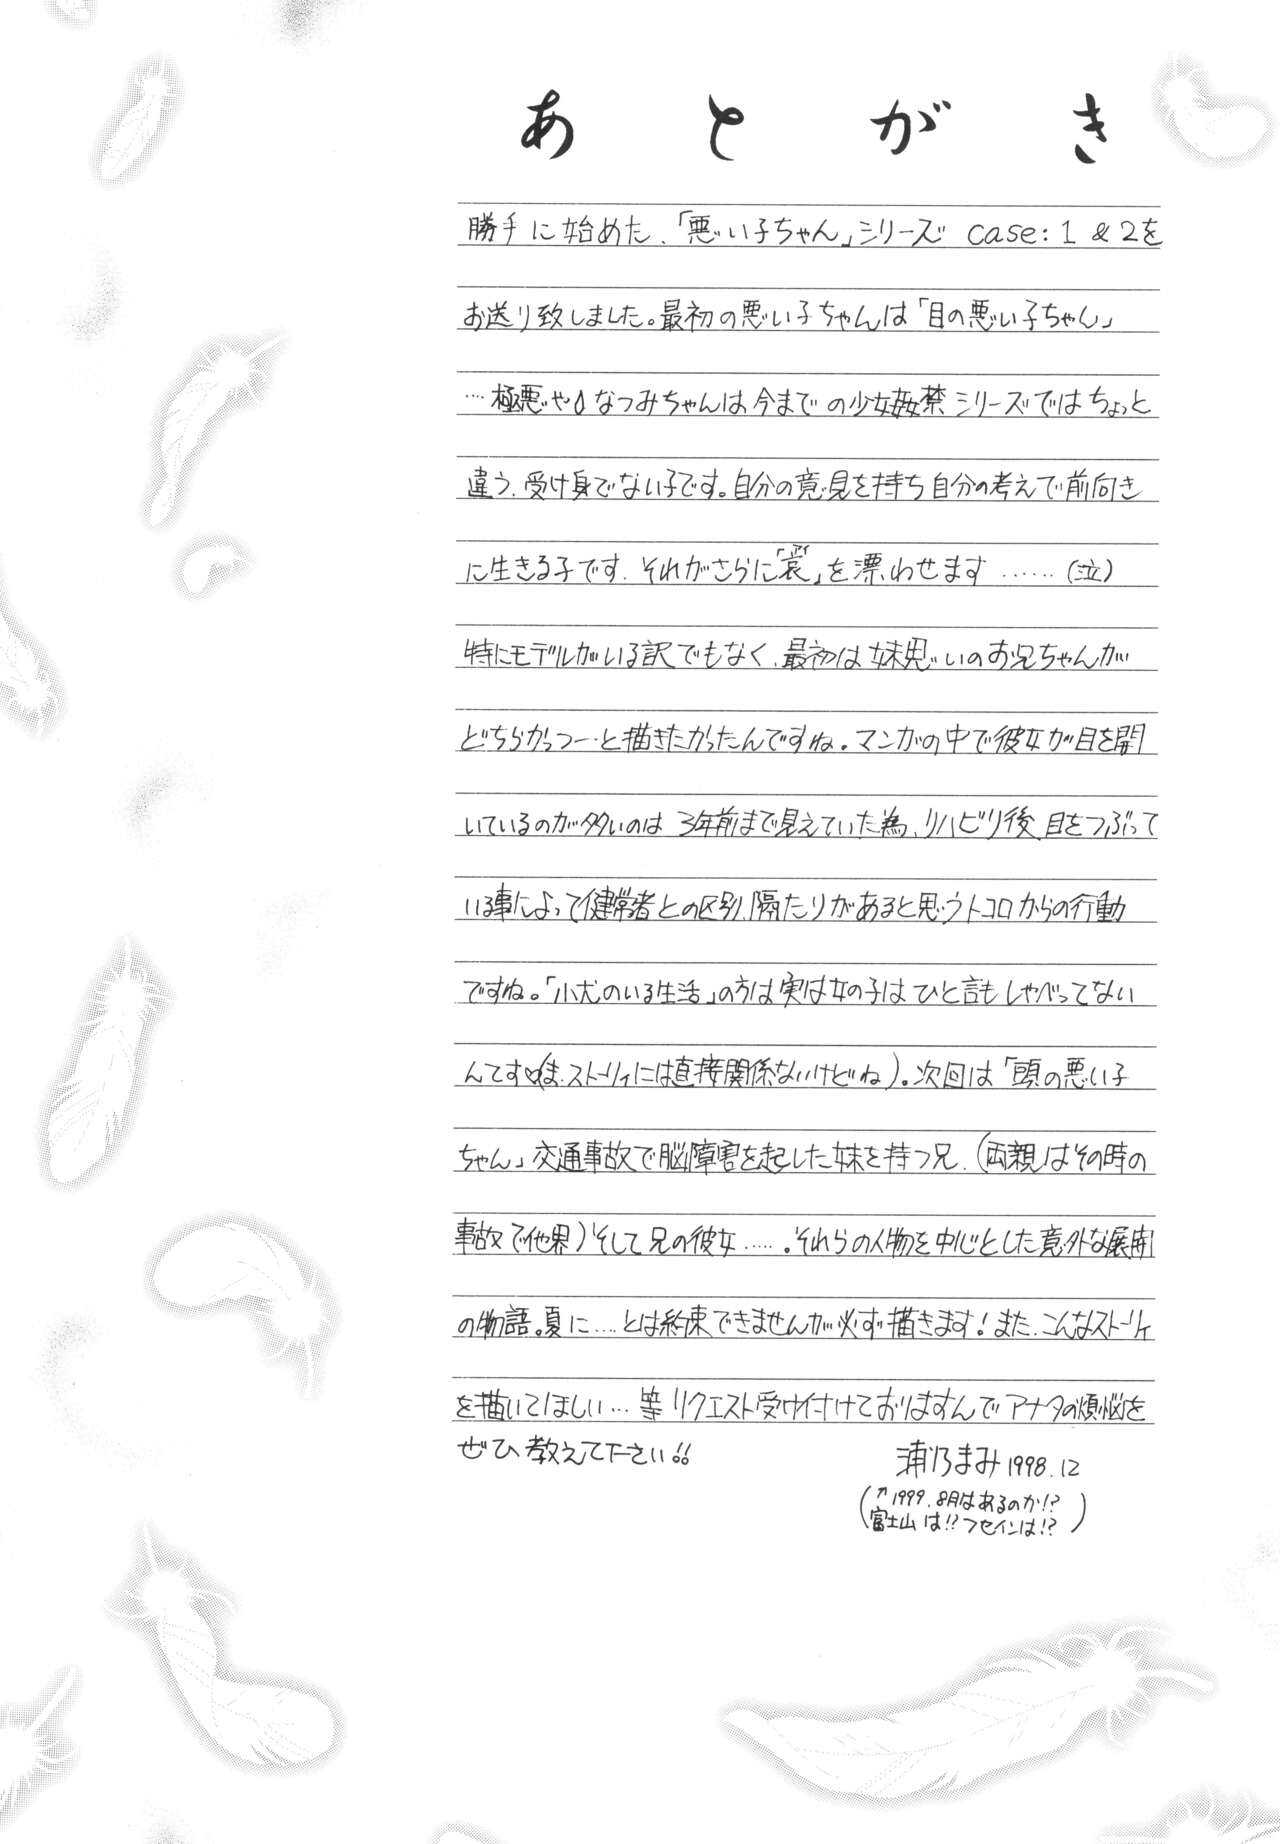 あとがき
勝手に始めた、「悪い子ちゃん」シリーズ case:1 & 2を
お送り致しました。最初の悪い子ちゃんは「目の悪い子ちゃん」
…極悪や♪なつみちゃんは今までの少女姦禁シリーズではちょっと
違う、受け身でない子です。自分の意見を持ち自分の考えで前向き
に生きる子です、それがさらに「哀」を漂わせます……(泣)
特にモデルがいる訳でもなく、最初は妹思いのお兄ちゃんが
どちらかっつー…と描きたかったんですね。マンガの中で彼女が目を開
いているのが多いのは 3年前まで見えていた為、リハビリ後、目をつぶって
いる事によって健常者との区別、隔たりがあると思うトコロからの行動
ですね。「小犬のいる生活」の方は実は女の子はひと言もしゃべってない
んです♡(ま、ストーリィには直接関係ないけどね)。次回は「頭の悪い子
ちゃん」交通事故で脳障害を起した妹を持つ兄、(両親はその時の
事故で他界)そして兄の彼女……。それらの人物を中心とした意外な展開
の物語。夏に…とは約束できませんが必ず描きます!また、こんなストーリィ
を描いてほしい…等リクエスト受け付けておりますんでアナタの煩悩を
ぜひ教えて下さい!!
浦乃まみ 1998.12
(↑1999.8月はあるのか!?
富士山は!?フセインは!?)